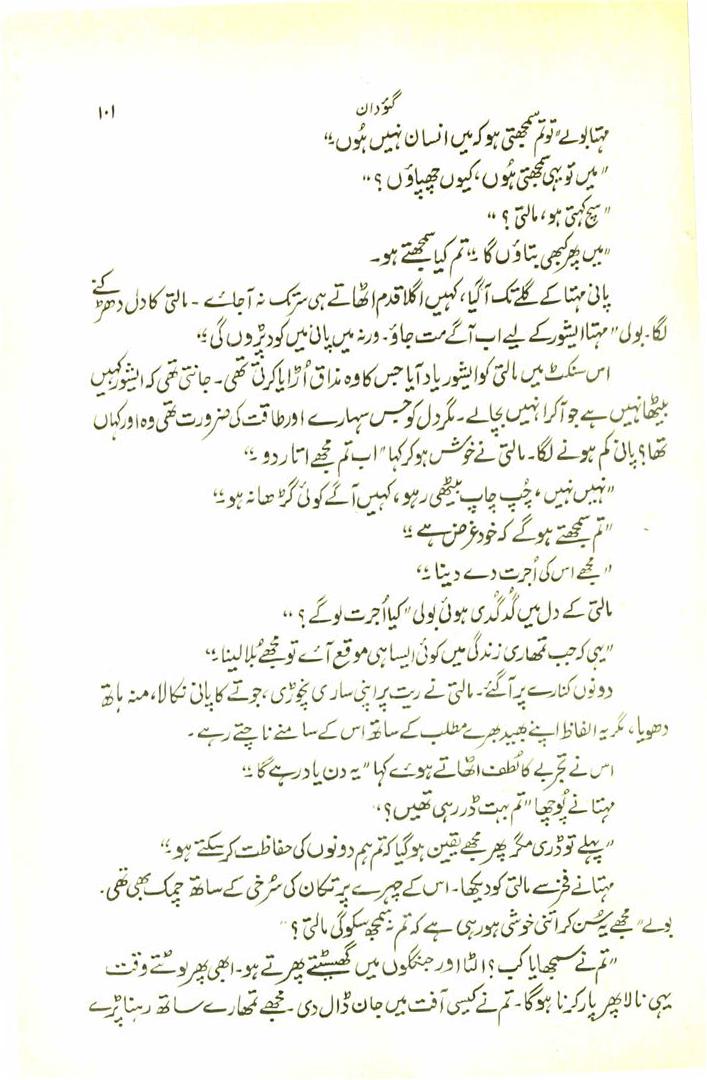 گئودان ۱۰۱
مہتا بولے "تو تم سمجھتی ہو کہ میں انسان نہیں ہُوں۔"
"میں تو یہی سمجھتی ہُوں، کیوں چھپاؤں؟"
"سچ کہتی ہو، مالتی؟"
"میں پھر کبھی بتاؤں گا۔" تم کیا سمجھتے ہو۔
پانی مہتا کے گلے تک آ گیا، کہیں اگلا قدم اٹھاتے ہی سر تک نہ آ جائے۔ مالتی کا دل دھڑکنے
لگا۔ بولی "مہتا ایشور کے لیے اب آگے مت جاؤ۔ ورنہ میں پانی میں کود پڑوں گی۔"
اس سنکٹ میں مالتی کو ایشور یاد آیا جس کا وہ مذاق اُڑایا کرتی تھی۔ جانتی تھی کہ ایشور کہیں
بیٹھا نہیں ہے جو آ کر انہیں بچا لے۔ مگر دل کو جس سہارے اور طاقت کی ضرورت تھی وہ اور کہاں
تھا؟ پانی کم ہونے لگا۔ مالتی نے خوش ہو کر کہا "اب تم مجھے اتار دو۔"
"نہیں نہیں، چُپ چاپ بیٹھی رہو، کہیں آگے کوئی گڑھا نہ ہو۔"
"تم سمجھتے ہوگے کہ خود غرض ہے۔"
"مجھے اس کی اُجرت دے دینا۔"
مالتی کے دل میں گُدگُدی ہوئی بولی "کیا اُجرت لوگے؟"
"یہی کہ جب تمھاری زندگی میں کوئی ایسا ہی موقع آئے تو مجھے بُلا لینا۔"
دونوں کنارے پر آ گئے۔ مالتی نے ریت پر اپنی ساری نچوڑی، جوتے کا پانی نکالا، منہ ہاتھ
دھویا، مگر یہ الفاظ اپنے بھید بھرے مطلب کے ساتھ اس کے سامنے ناچتے رہے۔
اس نے تجربے کا لُطف اٹھاتے ہوئے کہا "یہ دن یاد رہے گا۔"
مہتا نے پُوچھا "تم بہت ڈر رہی تھیں؟"
"پہلے تو ڈری مگر پھر مجھے یقین ہو گیا کہ تم ہم دونوں کی حفاظت کر سکتے ہو۔"
مہتا نے فخر سے مالتی کو دیکھا۔ اس کے چہرے پر تکان کی سُرخی کے ساتھ چمک بھی تھی۔
بولے "مجھے یہ سُن کر اتنی خوشی ہو رہی ہے کہ تم نہ سمجھ سکوگی مالتی؟"
"تم نے سمجھایا کب؟ الٹا اور جنگلوں میں گھسیٹتے پھرتے ہو۔ ابھی پھر لوٹتے وقت
یہی نالا پھر پار کرنا ہوگا۔ تم نے کیسی آفت میں جان ڈال دی۔ مجھے تمھارے ساتھ رہنا پڑے